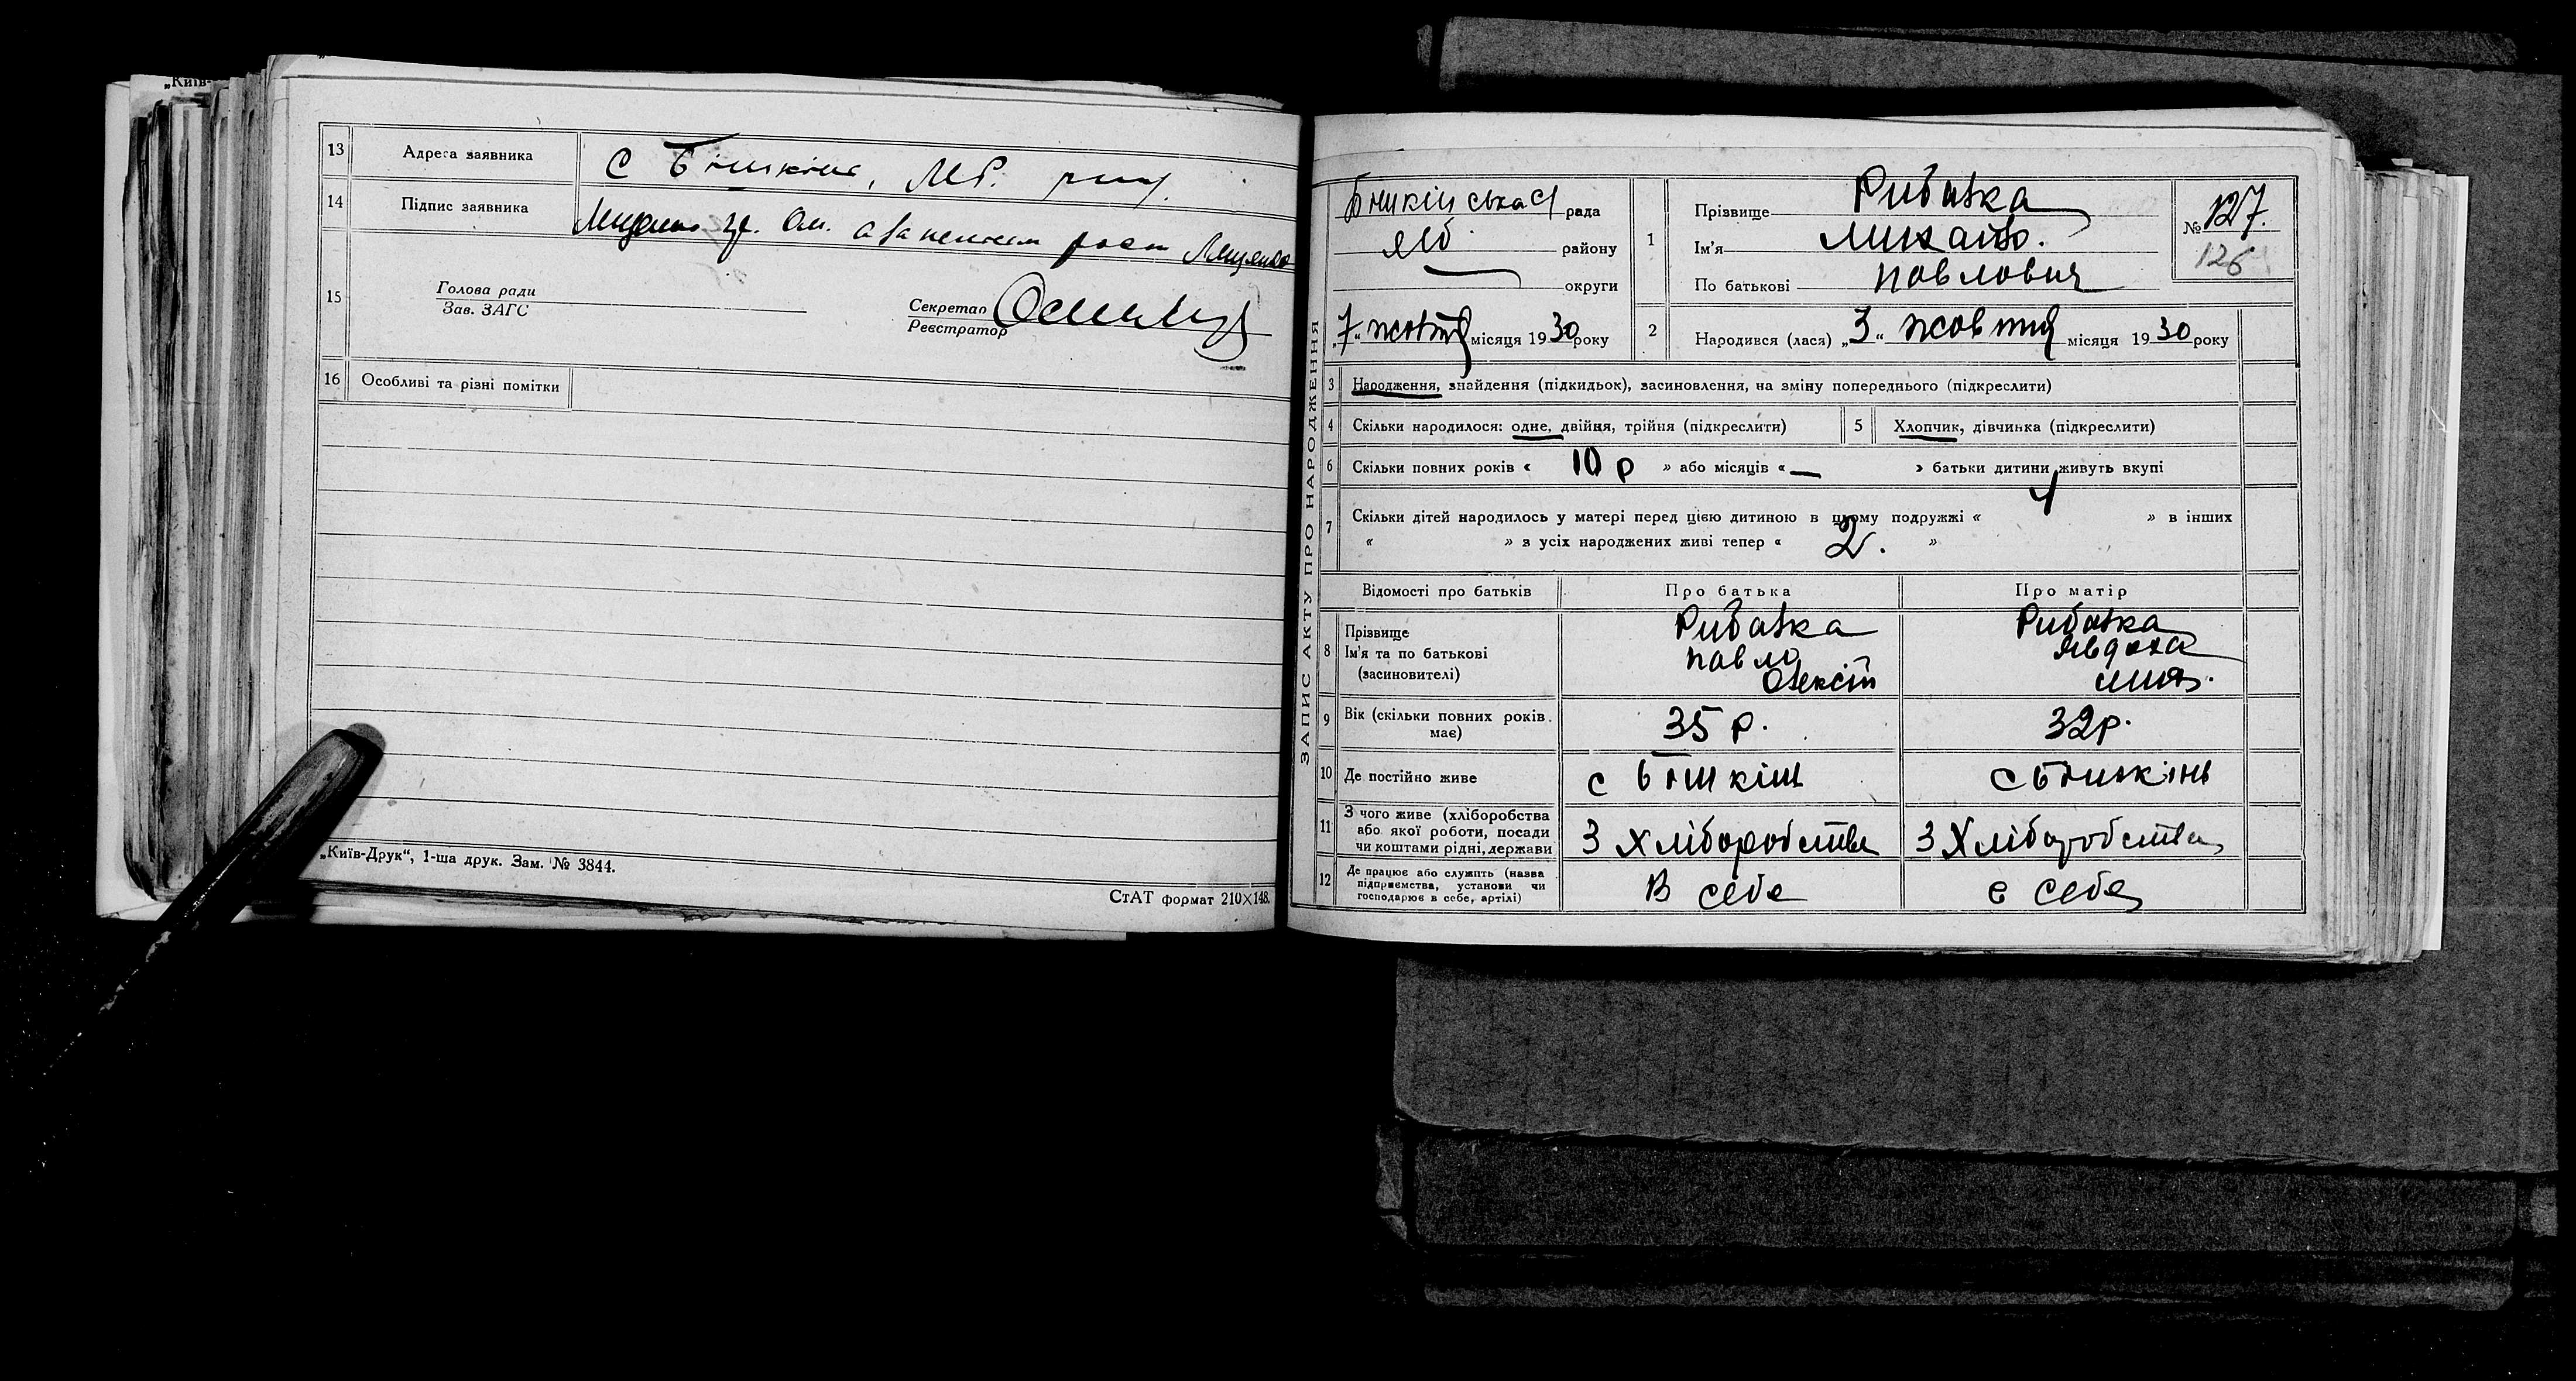 „Київ-
13 Адреса заявника С Бішкінь,
14 Підпис заявника
15 Голова ради
Зав. ЗАГС
Секретар
Реєстратор
16 Особливі та різні помітки
„Київ-Друк“, 1-ша друк. Зам. № 3844.
СтАТ формат 210×148.
ЗАПИС АКТУ ПРО НАРОДЖЕННЯ
Бішкінська рада
району
округи
„7“ жовтня місяця 1930 року
1 Прізвище Рибалка
Ім'я Михайло.
По батькові Павлович
№ 127.
126
2 Народився (лася) „3“ жовтня місяця 1930 року
3 Народження, знайдення (підкидьок), засиновлення, на зміну попереднього (підкреслити)
4 Скільки народилося: одне, двійня, трійня (підкреслити) 5 Хлопчик, дівчинка (підкреслити)
6 Скільки повних років « 10 р » або місяців « — » батьки дитини живуть вкупі
7 Скільки дітей народилось у матері перед цією дитиною в цьому подружжі « 4 » в інших
« » з усіх народжених живі тепер « 2. »
Відомості про батьків Про батька Про матір
8 Прізвище Рибалка Рибалка
Ім'я та по батькові Павло Явдоха
(засновителі) Олексій
9 Вік (скільки повних років 35 р. 32 р.
має)
10 Де постійно живе с Бішкінь с Бішкінь
11 З чого живе (хліборобства
або якої роботи, посади
чи коштами рідні, держави З Хліборобства З Хліборобства
12 Де працює або служить (назва
підприємства, установи чи
господарює в себе, артілі) В себе в себе